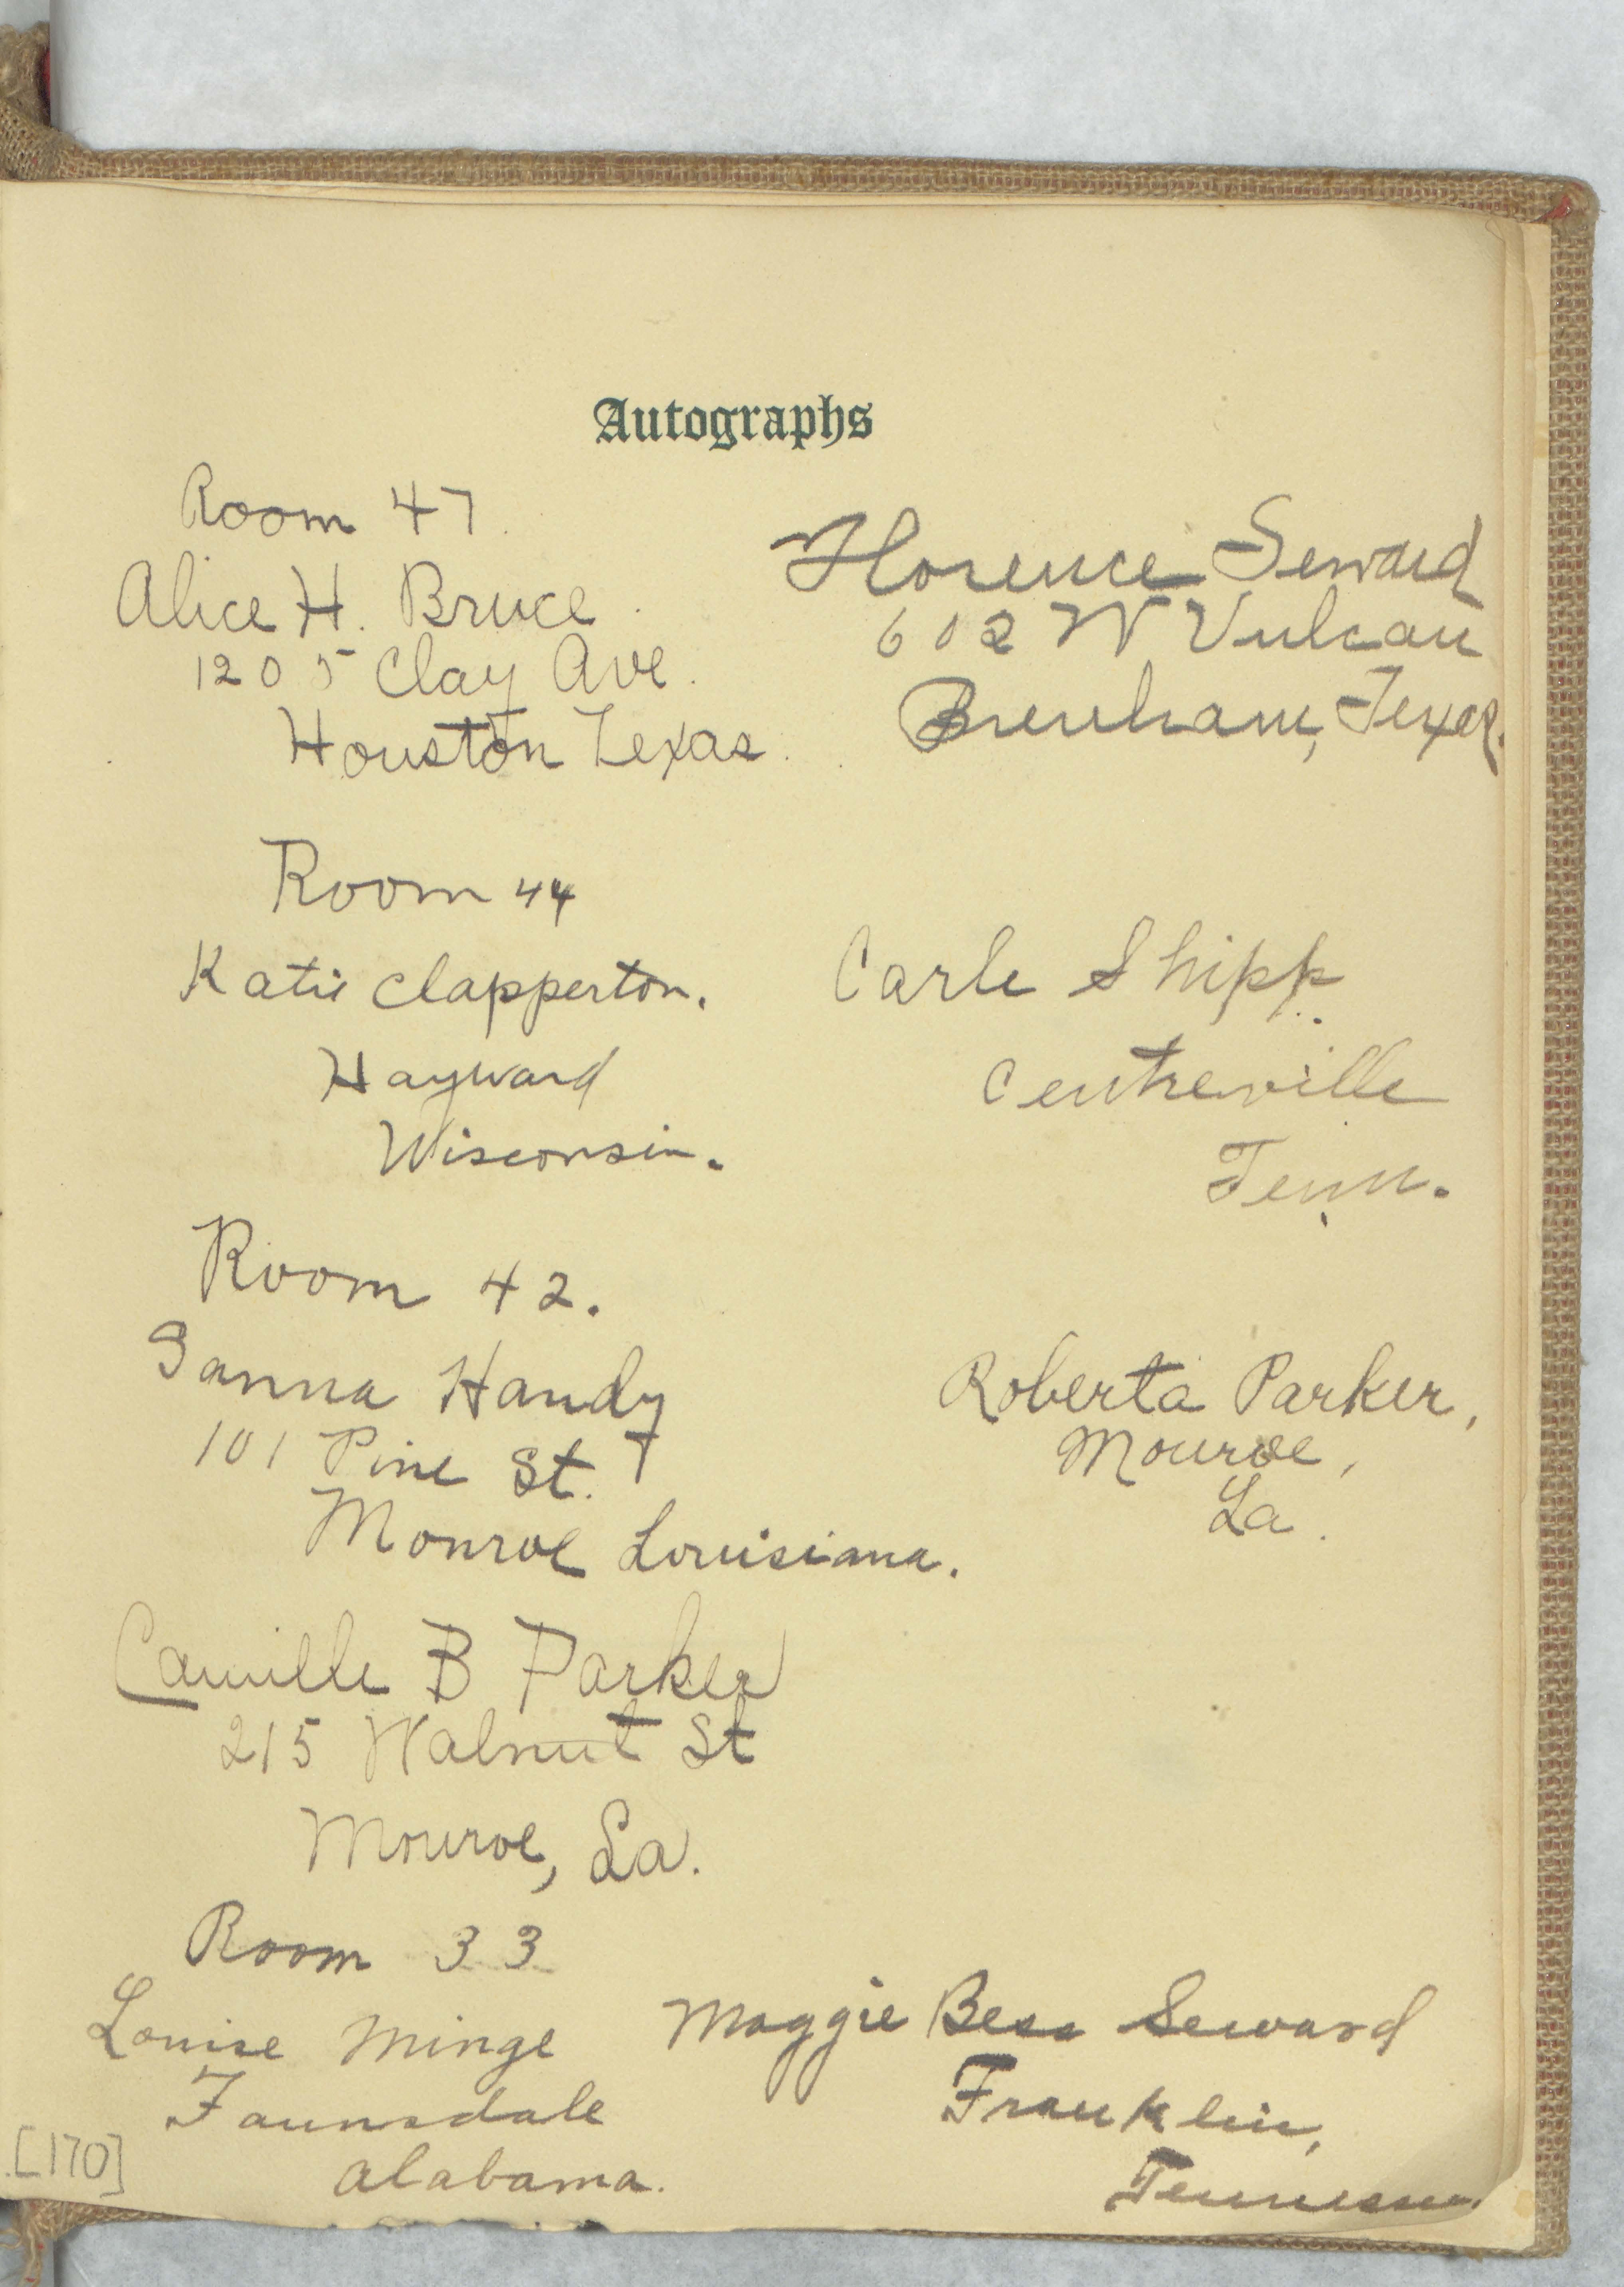 Autographs
Room 47.
Alice H. Bruce
1205 Clay Ave.
Houston Texas.
Florence Seward
602 W Vulcan
Brenham, Texas.
Room 44
Katie Clapperton.
Hayward
Wisconsin.
Carle Shipp.
Centreville
Tenn.
Room 42.
Handy
101 Pine St.
Monroe Louisiana.
Roberta Parker,
Monroe,
La.
Camille B Parker
215 Walnut St
Monroe, La.
Room 33
Louise Minge
Faunsdale
Alabama.
Maggie Bess Seward
Franklin,
Tennessee.
[170]